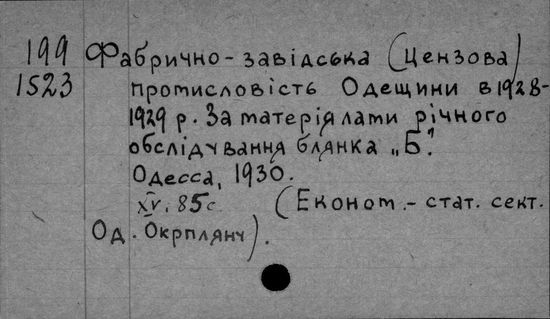 199 Фабрично-завідська (Цензова)
1523 промисловість Одещини в 1928-
1929 р. За матеріялами річного
обслідування бланка „Б".
Одесса, 1930.
XV, 85с. (Економ.-стат. сект.
Од. Окрплянч).